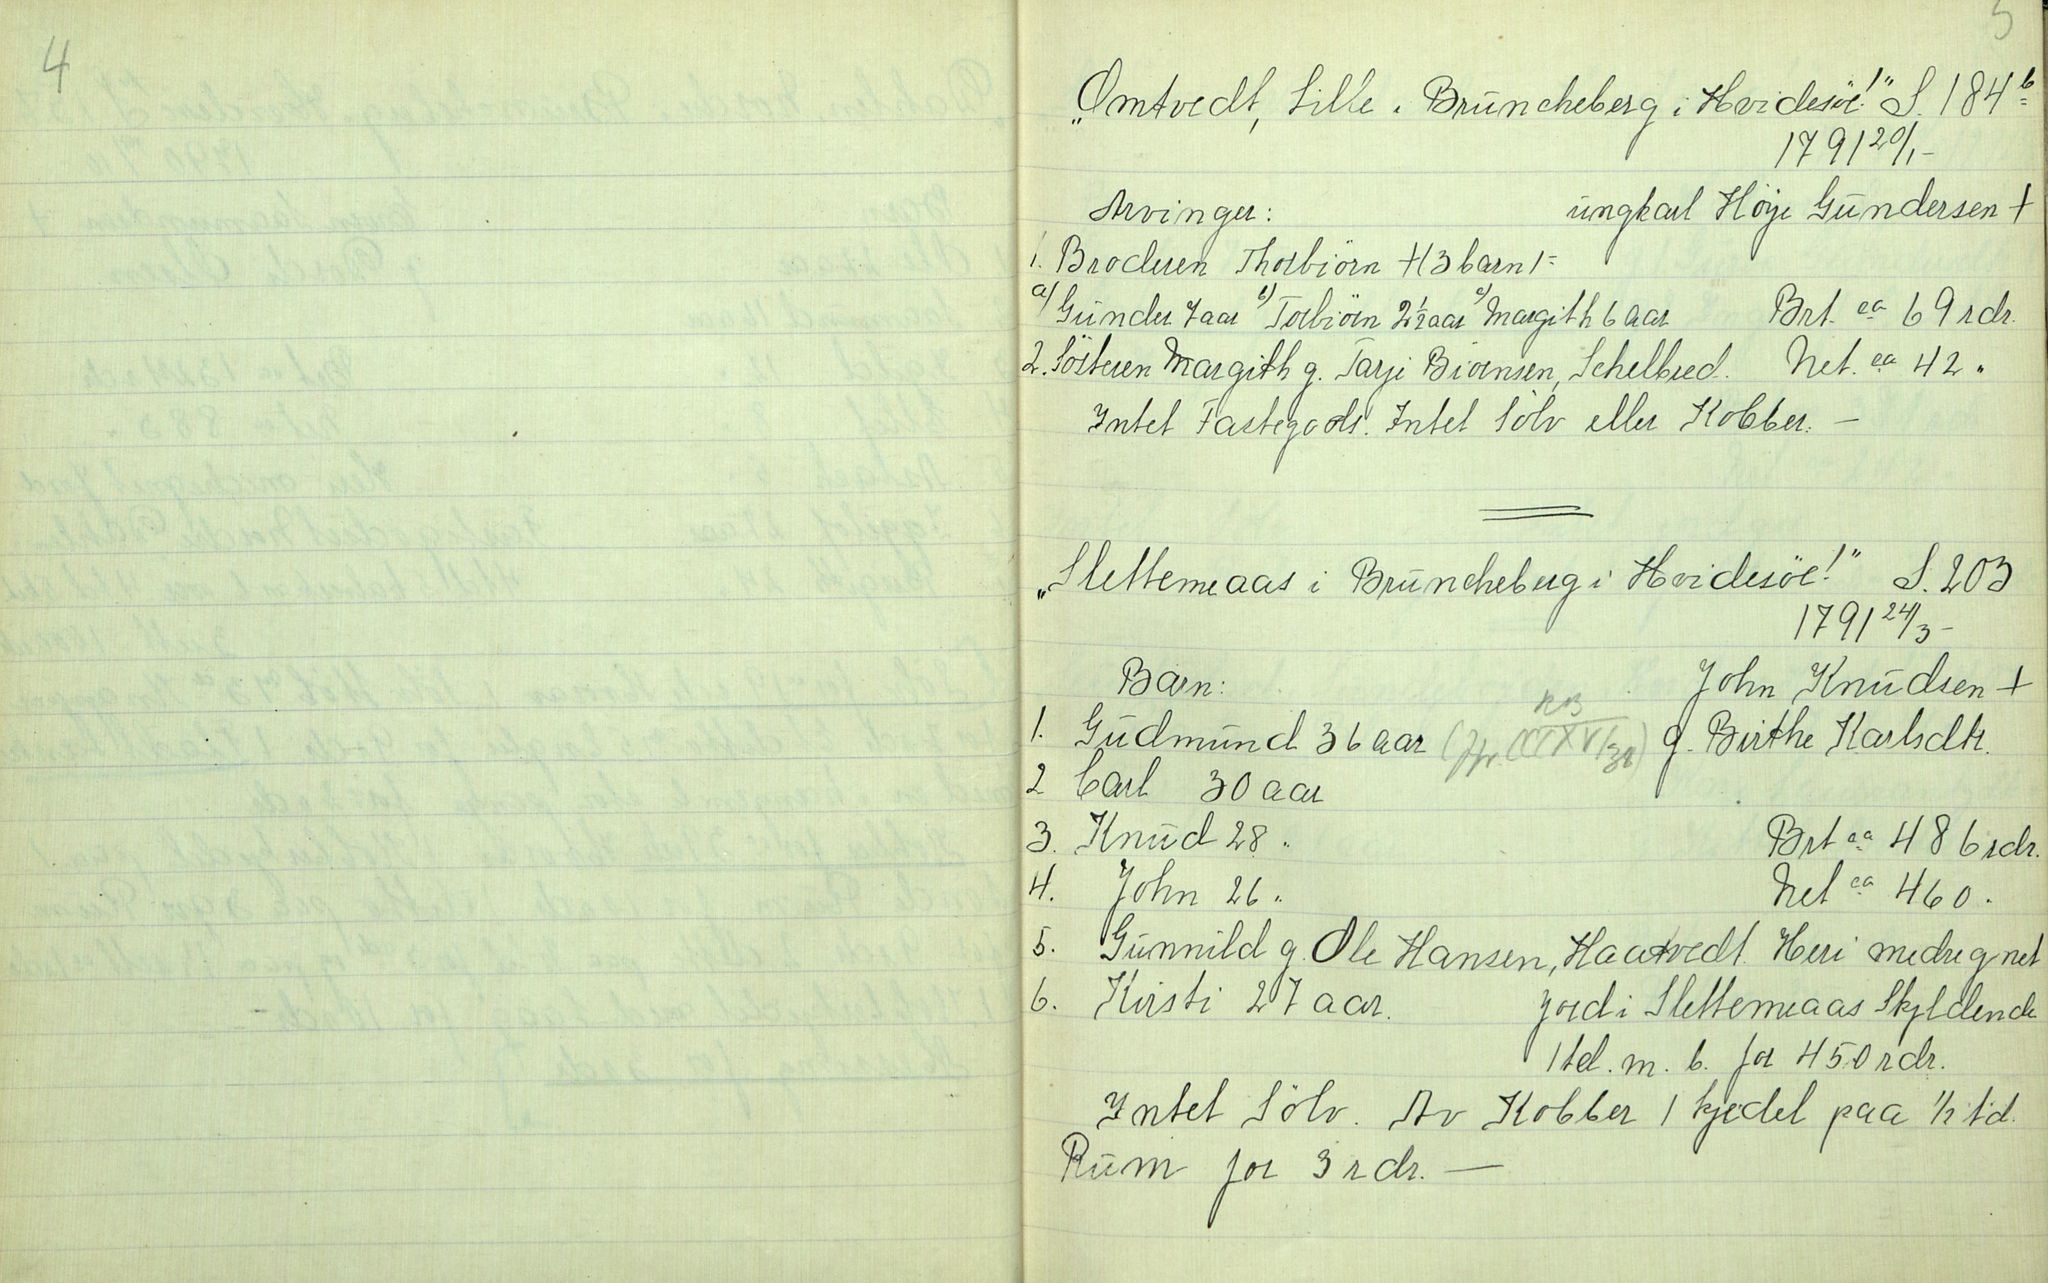 4
5
„Omtvedt, Lille i Brüncheberg i Hvidesöe!" S. 184b
1791 20/1 -
Arvinger: ungkarl Höje Gündersen +
1. Broderen Thorbiörn + (3 barn) =
a) Günder 7 aar b) Torbiörn 2 1/2 aar c) Margith 6 aar Brt. ca 69 rdr.
2. Sösteren Margith g. Tarje Biörnsen, Schelbred. Net. ca 42 "
Intet Fastegods. Intet Sölv eller Kobber. —
„Slettemeaas i Brüncheberg i Hvidesöe!" S. 203
1791 24/3 -
Barn: John Knüdsen +
1. Güdmünd 36 aar g. Birthe Karlsdtr.
2 Carl 30 aar
3. Knüd 28 " Brt ca 486 rdr.
4. John 26 " Net ca 460 "
5. Günnild g. Ole Hansen, Haatvedt Heri medregnet
6. Kirsti 27 aar. jord i Slettemeaas Skyldende
1 td. m. b. for 450 rdr.
Intet Sölv. Av Kobber 1 kjedel paa 1/2 td.
Rüm for 3 rdr. —